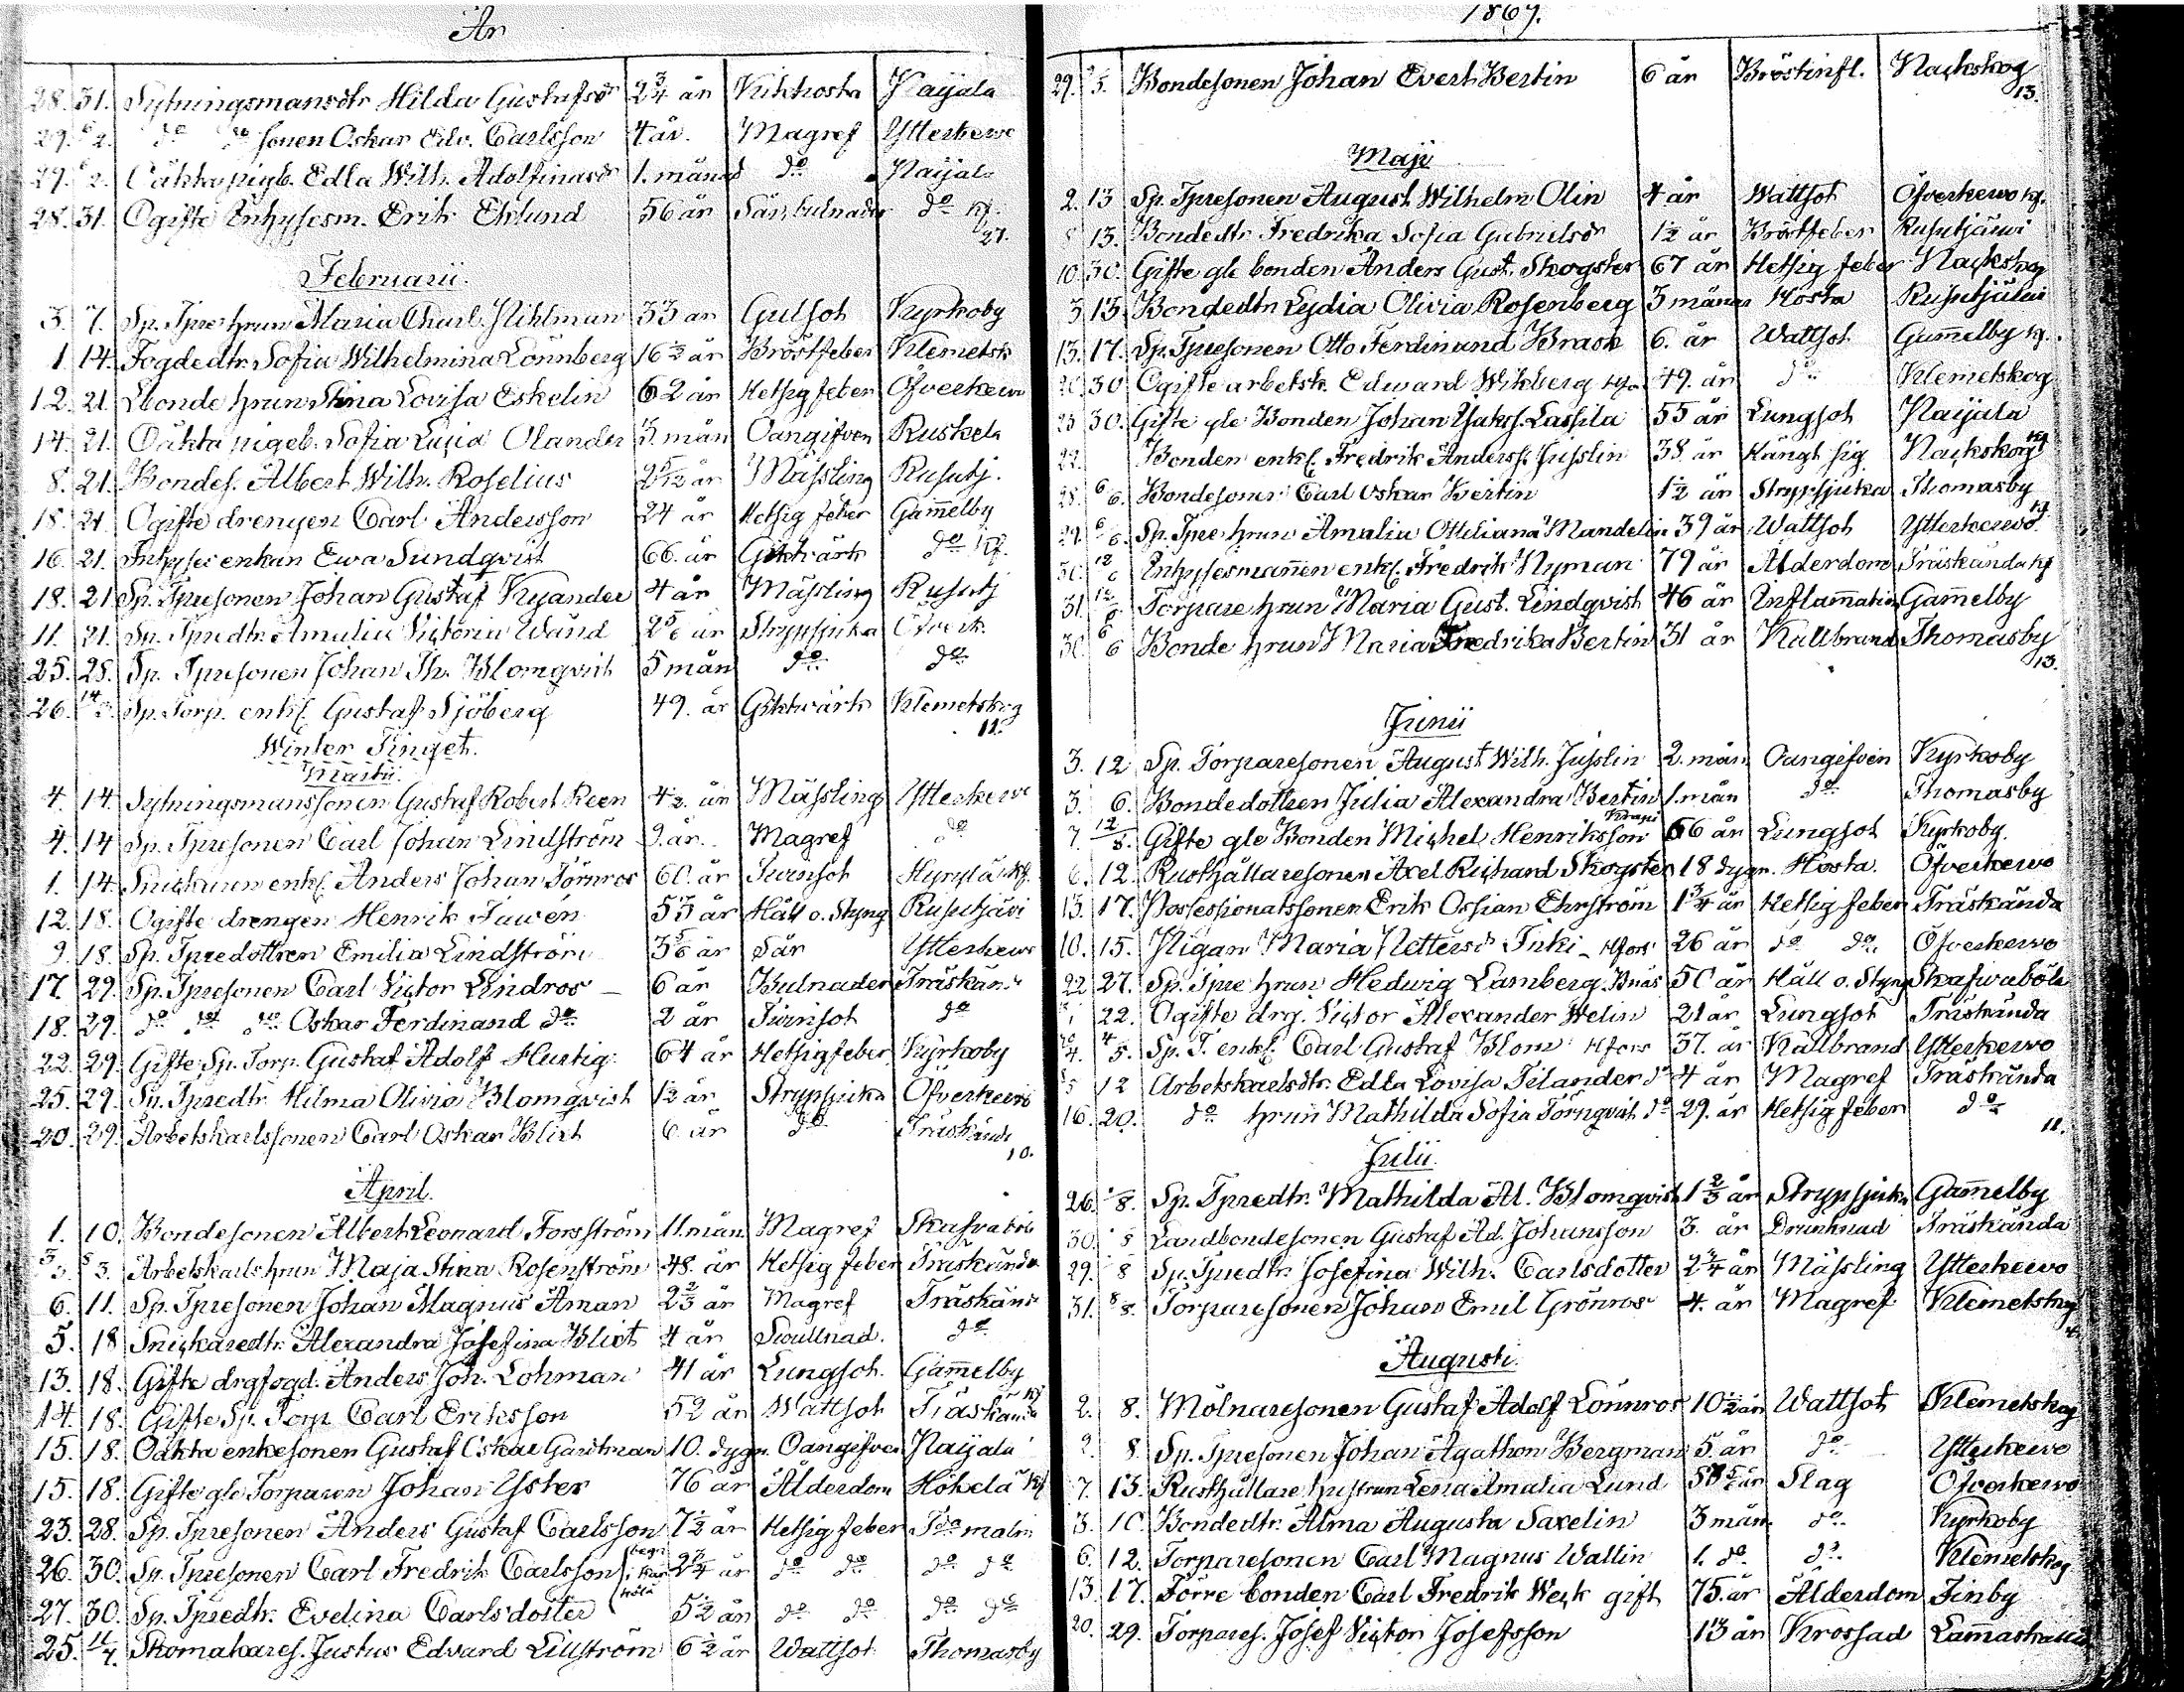 År
28. 31. Sytningsmansdtr Hilda Gustafsdr 2 3/4 år Kikhosta Paijala
29. 2. do do sonen Oskar Edv. Carlsson 4 år. Magref Ytterkervo
29. 2. Oäkta pigb. Edla Wilh. Adolfinasdr 1. månad do Paijala
28. 31. Ogifte Inhysesm. Erik Eklund 56 år Sår, bulnader do kf.
27.
Februarii.
3. 7. Sp. Tpre hrun Maria Charl. Stihlman 33 år Gulsot Kyrkoby
1 14. Fogdedtr. Sofia Wilhelmina Lönnberg 16 1/2 år Bröstfeber Klemetsk
12. 21. Bonde hrun Stina Lovisa Eskelin 62 år Hetsig feber Öfverkervo
14. 21. Oäkta pigeb. Sofia Lusia Olander 3. mån Oangifven Ruskela
8. 21. Bondes. Albert Wilh. Roselius 2 5/12 år Mässling Rusutj.
18. 21. Ogifte drengen Carl Andersson 24 år Hetsig feber Gam̄elby
16. 21. Inhyses enkan Ewa Sundqvist 66. år Giktvärk do kf.
18. 21 Sp. Tpresonen Johan Gustaf Kyander 4 år Mässling Rusutj
11. 21. Sp. Tpredtr. Amalia Victoria Wänd 2 5/6 år Strypsjuka Öfverk.
25. 28. Sp. Tpresonen Johan Th. Blomqvist 5 mån do do
26. 14/3. Sp. Torp. enkl. Gustaf Sjöberg 49. år Giktvärk Klemetskog
11.
Winter Tinget.
Martii.
4. 14. Sytningsmanssonen Gustaf Robert Reen 4 1/2. år Mässling Ytterkervo
4. 14 Sp. Tpresonen Carl Johan Lindström 9. år. Magref do
1. 14 Snickaren enkl. Anders Johan Törnros 60. år Twinsot Hyrylä kf.
12. 18. Ogifte drengen Henrik Tawén 53 år Håll o. Styng Rusutjävi
9. 18. Sp. Tpredottren Emilia Lindström 3 5/6 år Sår Ytterkervo
17. 29. Sp. Tpresonen Carl Victor Lindros 6 år Bulnader Träskända
18. 29. do do do Oskar Ferdinand do 2 år Twinsot do
22. 29. Gifte Sp. Torp. Gustaf Adolf Hurtig 64 år Hetsig feber Kyrkoby
25. 29. Sp. Tpredtr. Hilma Olivia Blomqvist 1 1/2 år Strypsjuka Öfverkervo
20. 29. Arbetskarlssonen Carl Oskar Blixt 6. år do Träskända
10.
April.
1. 10. Bondesonen Albert Leonard Forsström 11. mån. Magref Skafvaböle
3/3. 8/3. Arbetskarls hrun Maja Stina Rosenström 48. år Hetsig feber Träskända
6. 11. Sp. Tpresonen Johan Magnus Åman 2 2/3 år Magref Träskända
5. 18 Snickaredtr. Alexandra Josefina Blixt 4 år Swullnad. do
13. 18. Gifte drgfogd. Anders Joh. Lohman 41 år Lungsot. Gam̄elby
14. 18. Gifte Sp. Torp. Carl Eriksson 52 år Wattsot Träskända kf
15. 18. Oäkta enkesonen Gustaf Oskar Gardtman 10. dygn. Oangifven Paijala
15. 18. Gifte gle Torparen Johan Yster 76 år Ålderdom Hökelä kf
23. 28. Sp. Tpresonen Anders Gustaf Carlsson 7 1/2 år Hetsig feber malm
26. 30. Sp. Tpresonen Carl Fredrik Carlsson 2 3/4 år do do do do
27. 30. Sp. Tpredtr. Evelina Carlsdotter 5 1/2 år do do do do
25. 11/4. Skomakares. Justus Edvard Lillström 6 1/2 år Wattsot Thomasby
1869.
29. 5. Bondesonen Johan Evert Bertin 6 år Bröstinfl. Nackskog
13.
Maji
2. 13 Sp. Tpresonen August Wilhelm Olin 4 år Wattsot Öfverkervo kf.
8 13. Bondedtr. Fredrika Sofia Gabrielsdr 1 1/2 år Bröstfeber Rusutjärvi
10 30. Gifte gle bonden Anders Gust. Skogster 67 år Hetsig feber Nackskog
3 13. Bondedtr Lydia Olivia Rosenberg 3 månar Hosta Rusutjärvi
13. 17. Sp. Tpresonen Otto Ferdinand Brask 6. år Wattsot Gam̄elby kf.
20 30 Ogifte arbetsk. Edward Wikberg Hfors 49. år do Klemetskog
23 30. Gifte gle Bonden Johan Jakss. Lassila 55 år Lungsot Paijala
22. Bonden enkl. Fredrik Anderss. Jusslin 38. år Hängt sig Nackskog kf
28. 6/6. Bondesonen Carl Oskar Bertin 1 1/2 år Strypsjuka Thomasby
29. 6/6. Sp. Tpre hrun Amalia Ottiliana Mandelin 39 år Wattsot Ytterkervo kf
30. 12/6 Inhysesman̄en enkl. Fredrik Nyman 79 år Ålderdom Träskända kf
31. 12/6. Torpare hrun Maria Gust. Lindqvist 46 år Inflam̄ation Gam̄elby
30. 6/6 Bonde hrun Maria Fredrika Bertin 31 år Kallbrand Thomasby
13.
Junii
3. 12 Sp. Torparesonen August Wilh. Jusslin 2. mån Oangifven Kyrkoby
3 6. Bondedottren Julia Alexandra Bertin 1. mån do Thomasby
7. 12/8. Gifte gle Bonden Michel Henriksson Krapi 66 år Lungsot Kyrkoby.
6. 12. Rusthållaresonen Axel Richard Skogster 18 dygn. Hosta. Öfverkervo
13. 17. Possessionatssonen Erik Ossian Ehrström 1 3/4 år Hetsig feber Träskända
10. 15. Pigan Maria Pettersdr Inki - Hfors 26 år do do Öfverkervo
22 27. Sp. Tpre hrun Hedwig Lamberg. Bnäs 50 år Håll o. Styng Skafwaböle
22. Ogifte drg. Victor Alexander Helin 21 år Lungsot Träskända
4. 4/5. Sp. T. enkl. Carl Gustaf Blom Hfors 37. år Kallbrand Ytterkervo
12 Arbetskarlsdtr. Edla Lovisa Tilander do 4 år Magref Träskända
16. 20. do hrun Mathilda Sofia Törnqvist do 29. år Hetsig feber do
11.
Julii.
26. 8. Sp. Tpredtr. Mathilda Al. Blomqvist 1 2/3 år Strypsjuka Gam̄elby
30. 8 Landbondesonen Gustaf Ad. Johansson 3. år Drunknad Träskända
29. 8 Sp. Tpredtr. Josefina Wilh. Carlsdotter 2 3/4 år Mässling Ytterkervo
31. 8/8. Torparesonen Johan Emil Grönros 4. år Magref Klemetskog
4.
Augusti.
2. 8. Mölnaresonen Gustaf Adolf Lönnros 10 1/2 år Wattsot Klemetskog
2. 8 Sp. Tpresonen Johan Agathon Bergman 5. år do Ytterkervo
7. 15. Rusthållare hustrun Lena Amalia Lund Slag Öfverkervo
3. 10. Bondedtr. Alma Augusta Saxelin 3 mån. do Kyrkoby
6. 12. Torparesonen Carl Magnus Wallin 1. do do Klemetskog
13. 17. Förre bonden Carl Fredrik Weck gift 75. år Ålderdom Finby
20. 29. Torpares. Josef Victor Josefsson 13 år Krossad Lam̄askallio